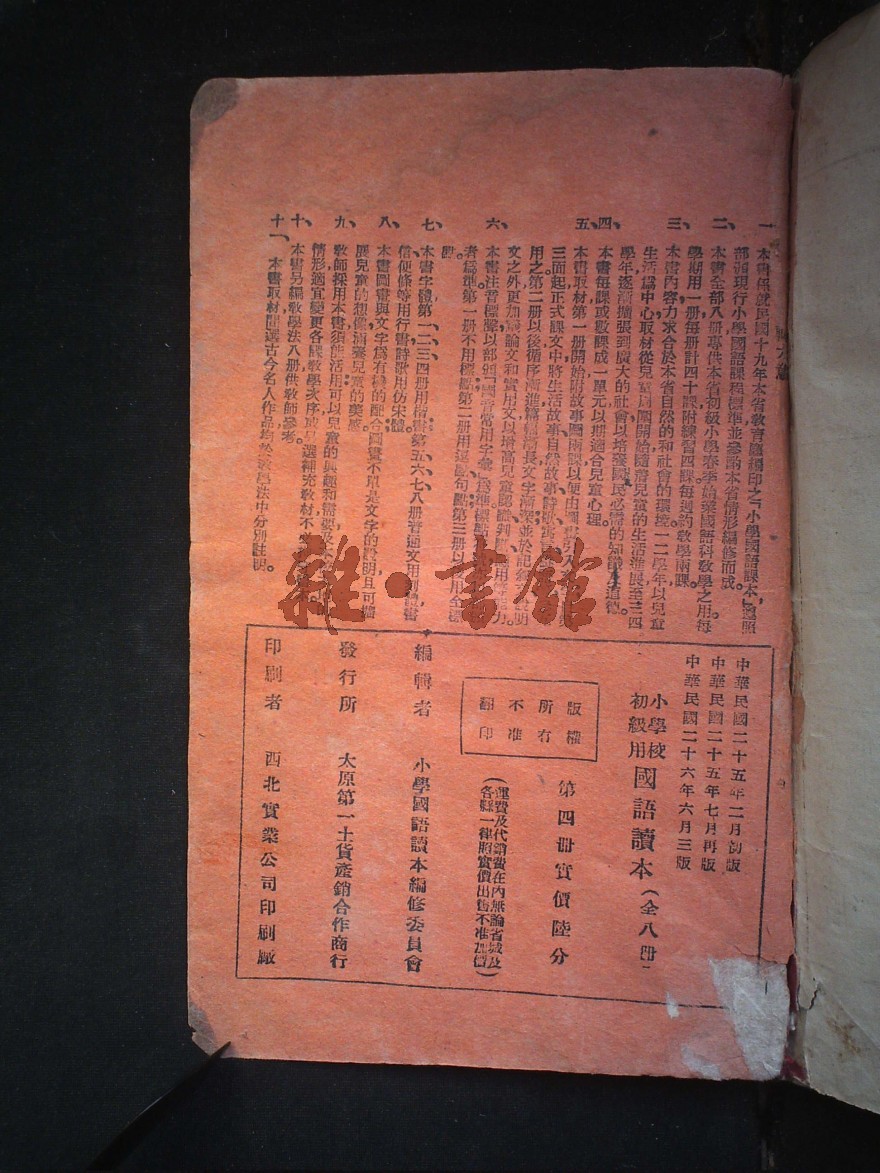 一、本書係就民國十九年本省教育廳編印之「小學國語課本」遵照
部頒現行小學國語課程標準並參酌本省情形編修而成。
二、本書全部八册專供本省初級小學春季始業國語科教學之用每
學期用一册每册計四十課附練習四課每週約教學兩課。
三、本書内容力求合於本省自然的和社會的環境一二學年以兒童
生活爲中心取材從兒童周圍開始隨着兒童的生活進展至三四
學年逐漸擴張到廣大的社會以培養國民必需的知識
四、本書每課或數課成一單元以期適合兒童心理。
五、本書取材第一册開始附故事圖兩課以便由圖
三面起正式課文中將生活故事自然故事詩歌
用之第二册以後循序漸進篇幅漸長文字漸深並於記敘說明
文之外更加議論文和實用文以增高兒童認識
六、本書注音標聲以部頒「國音常用字彙」爲準標點
者爲準第一册不用標點第二册用逗號句點第三册以後用全標
點。
七、本書字體第一二三四册用楷書第五六七八册普通文用
信便條等用行書詩歌用仿宋體。
八、本書圖畫與文字爲有機的配合圖畫不單是文字的說明且可擴
展兒童的想像涵養兒童的美感。
九、教師採用本書須能活用可以兒童的興趣和需要及本
情形適宜變更各課教學次序或另選補充教材不
十、本書另編教學法八册供教師參考。
十一、本書取材間選古今名人作品均於教學法中分別註明。
中華民國二十五年二月初版
中華民國二十五年七月再版
中華民國二十六年六月三版
小學校初級用 國語讀本(全八册)
版權所有
不准翻印
第四册實價陸分
(運費及代銷費在内無論省城及
各縣一律照實價出售不准加價)
編輯者 小學國語讀本編修委員會
發行所 太原第一土貨產銷合作商行
印刷者 西北實業公司印刷廠
雜·書館